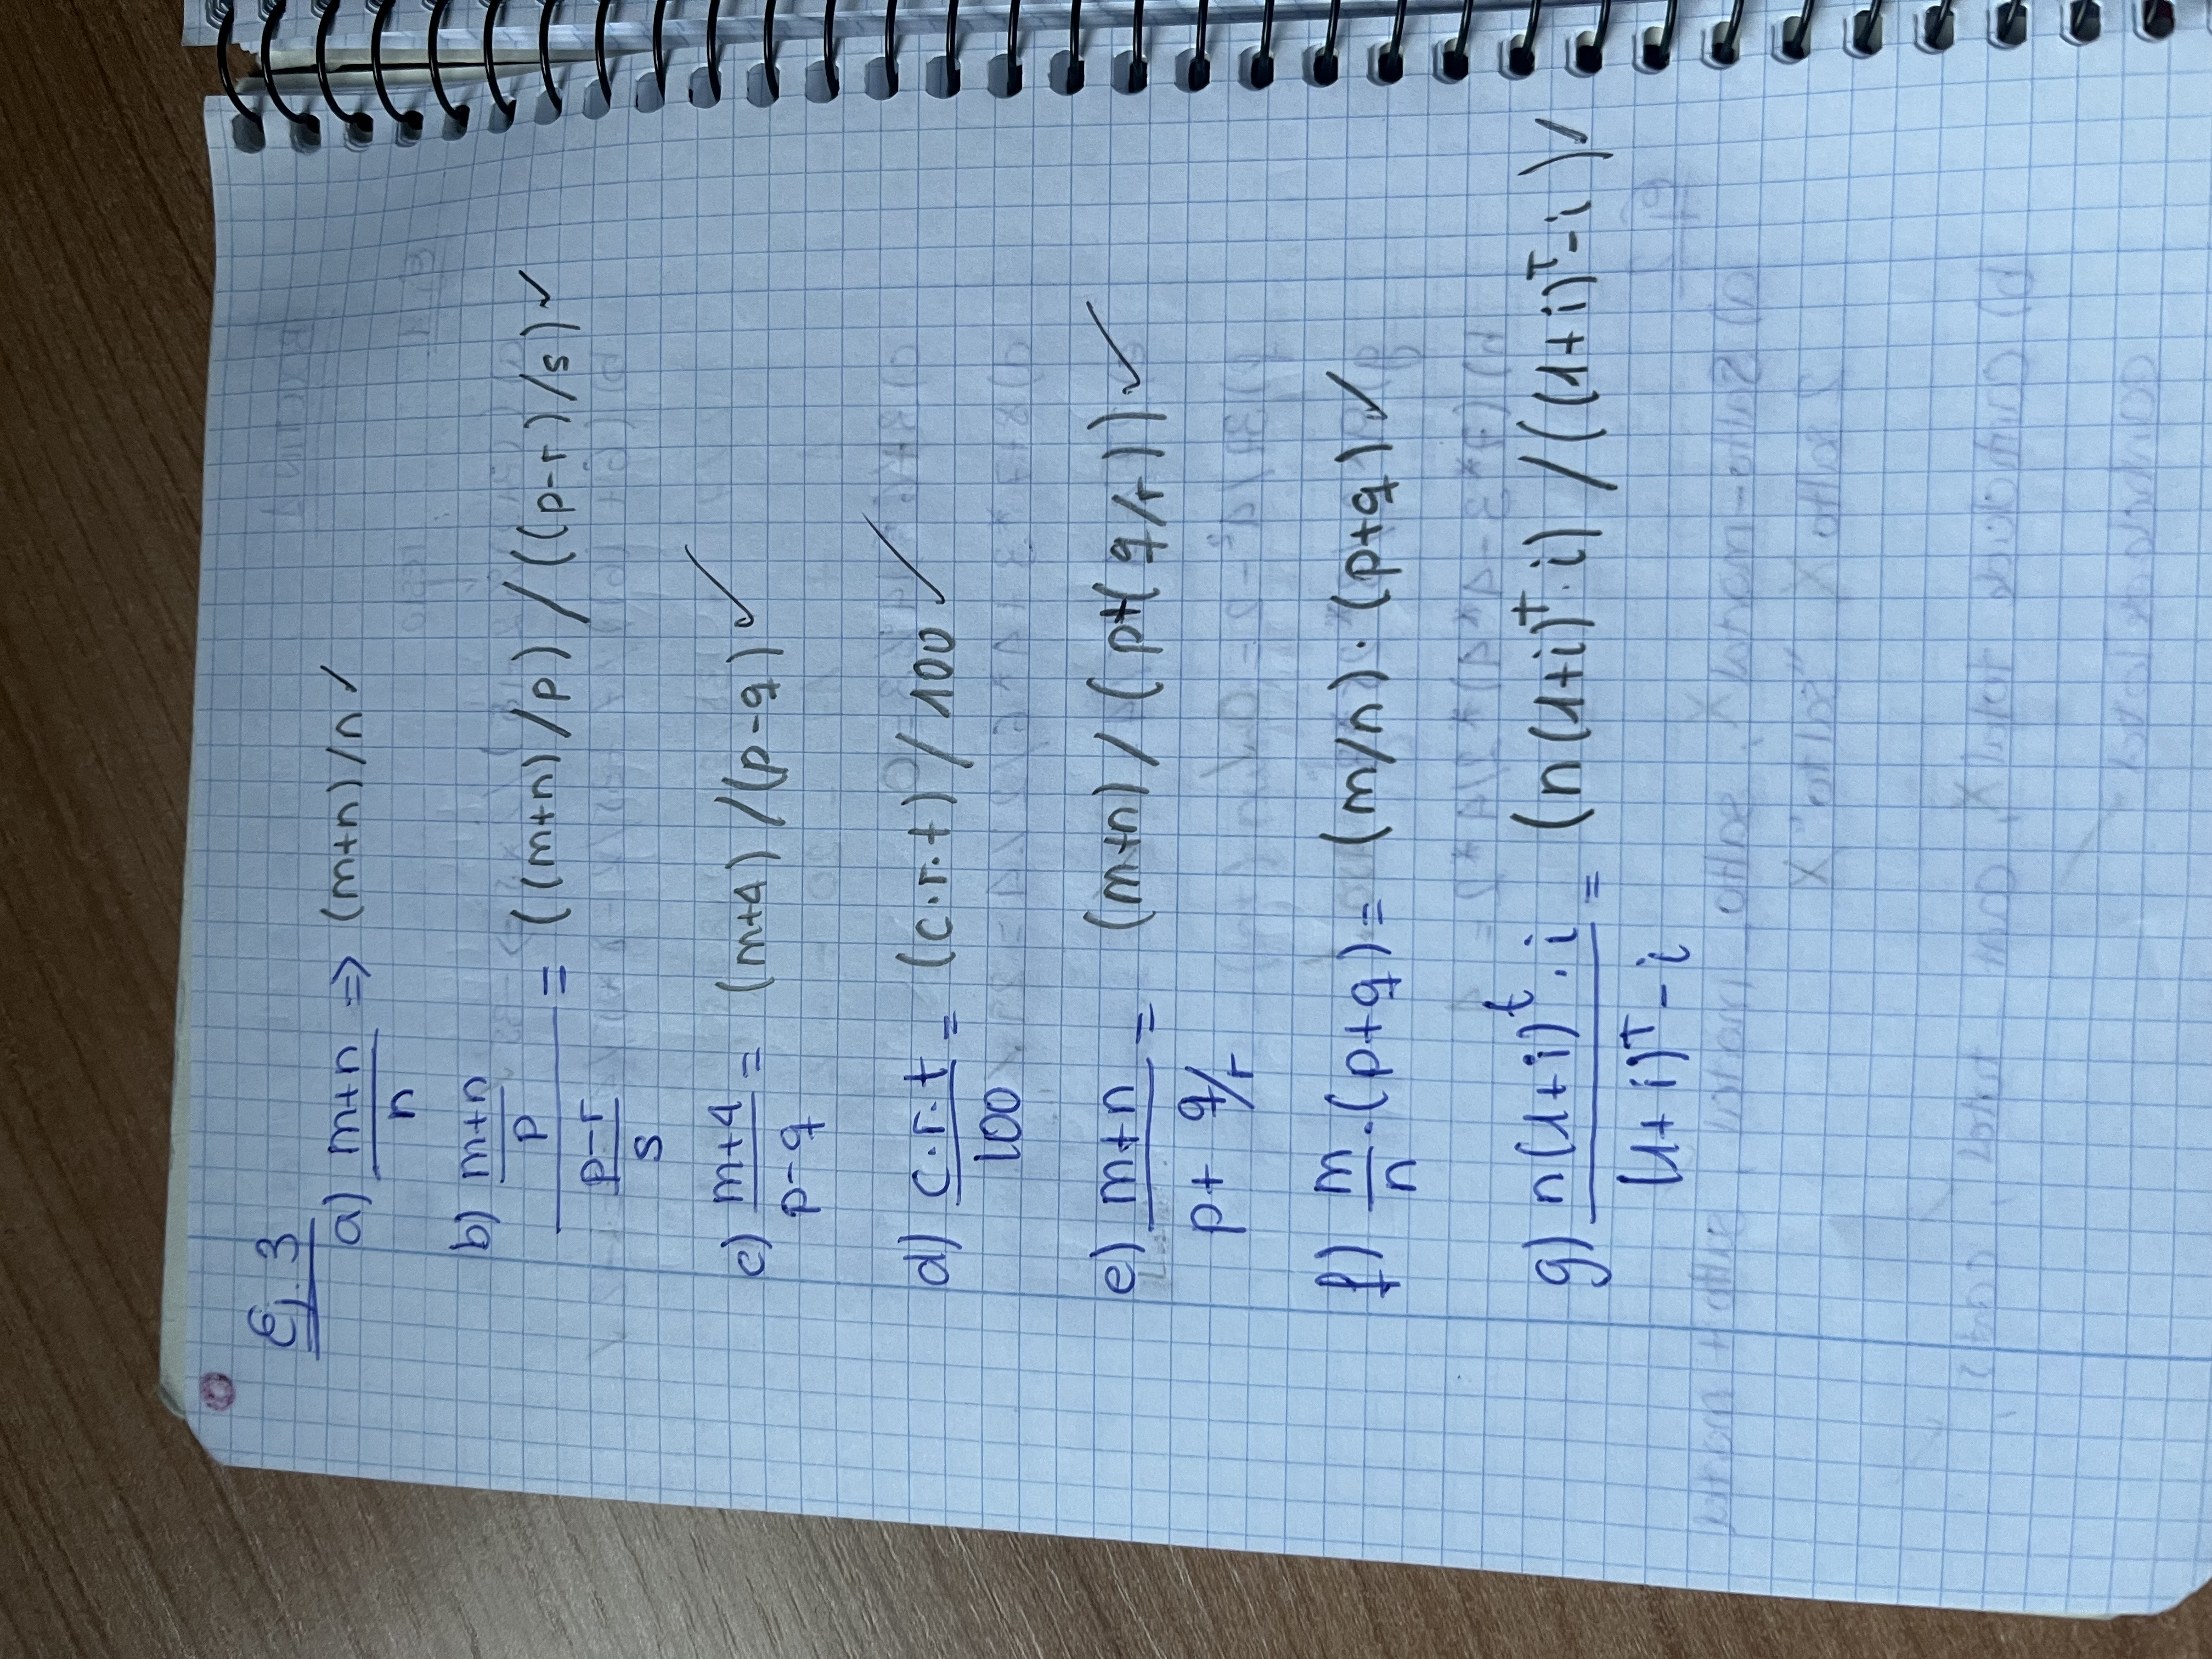 Ej. 3
a) m+n / n ⇒ (m+n)/n ✓
b) m+n / p / p-r / s = ((m+n)/p)/((p-r)/s) ✓
c) m+4 / p-q = (m+4)/(p-q) ✓
d) c.r.t / 100 = (c.r.t)/100 ✓
e) m+n / p+ q/r = (m+n)/(p+(q/r)) ✓
f) m/n·(p+q) = (m/n)·(p+q) ✓
g) n(1+i)^t·i / (1+i)^T-i = (n(1+i)^T·i)/((1+i)^T-i) ✓